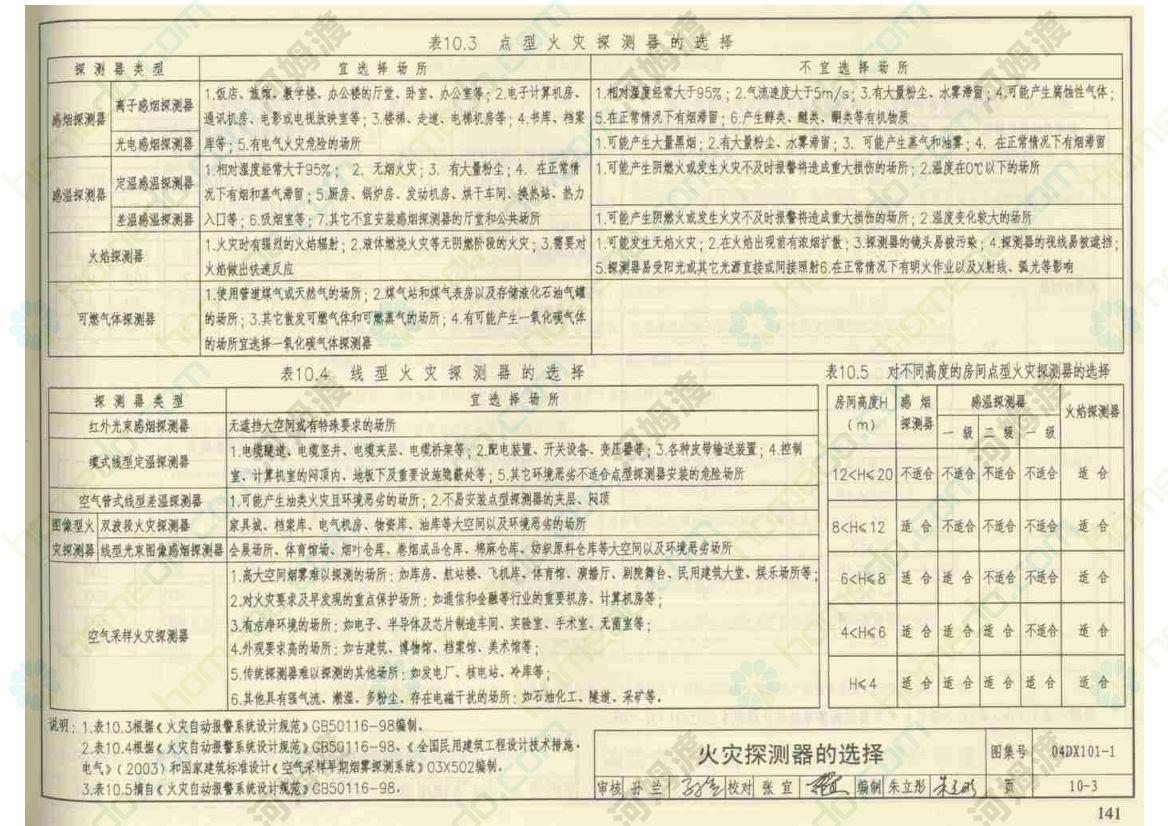 表10.3 点型火灾探测器的选择
探测器类型 宜选择场所 不宜选择场所
感烟探测器 离子感烟探测器
光电感烟探测器
1.饭店、旅馆、教学楼、办公楼的厅堂、卧室、办公室等;2.电子计算机房、
通讯机房、电影或电视放映室等;3.楼梯、走道、电梯机房等;4.书库、档案
库等;5.有电气火灾危险的场所
1.相对湿度经常大于95%;2.气流速度大于5m/s;3.有大量粉尘、水雾滞留;4.可能产生腐蚀性气体;
5.在正常情况下有烟滞留;6.产生醇类、醚类、酮类等有机物质
1.可能产生大量黑烟;2.有大量粉尘、水雾滞留;3.可能产生蒸气和油雾;4.在正常情况下有烟滞留
感温探测器 定温感温探测器
差温感温探测器
1.相对湿度经常大于95%;2.无烟火灾;3.有大量粉尘;4.在正常情
况下有烟和蒸气滞留;5.厨房、锅炉房、发动机房、烘干车间、换热站、热力
入口等;6.吸烟室等;7.其它不宜安装感烟探测器的厅堂和公共场所
1.可能产生阴燃火或发生火灾不及时报警将造成重大损伤的场所;2.温度在0℃以下的场所
1.可能产生阴燃火或发生火灾不及时报警将造成重大损伤的场所;2.温度变化较大的场所
火焰探测器
1.火灾时有强烈的火焰辐射;2.液体燃烧火灾等无阴燃阶段的火灾;3.需要对
火焰做出快速反应
1.可能发生无焰火灾;2.在火焰出现前有浓烟扩散;3.探测器的镜头易被污染;4.探测器的视线易被遮挡;
5.探测器易受阳光或其它光源直接或间接照射6.在正常情况下有明火作业以及X射线、弧光等影响
可燃气体探测器
1.使用管道煤气或天然气的场所;2.煤气站和煤气表房以及存储液化石油气罐
的场所;3.其它散发可燃气体和可燃蒸气的场所;4.有可能产生一氧化碳气体
的场所宜选择一氧化碳气体探测器
表10.4 线型火灾探测器的选择
探测器类型 宜选择场所
红外光束感烟探测器 无遮挡大空间或有特殊要求的场所
缆式线型定温探测器
1.电缆隧道、电缆竖井、电缆夹层、电缆桥架等;2.配电装置、开关设备、变压器等;3.各种皮带输送装置;4.控制
室、计算机室的闷顶内、地板下及重要设施隐蔽处等;5.其它环境恶劣不适合点型探测器安装的危险场所
空气管式线型差温探测器 1.可能产生油类火灾且环境恶劣的场所;2.不易安装点型探测器的夹层、闷顶
图像型火灾探测器 双波段火灾探测器 家具城、档案库、电气机房、物资库、油库等大空间以及环境恶劣的场所
线型光束图像感烟探测器 会展场所、体育馆场、烟叶仓库、卷烟成品仓库、棉麻仓库、纺织原料仓库等大空间以及环境恶劣场所
空气采样火灾探测器
1.高大空间烟雾难以探测的场所:如库房、航站楼、飞机库、体育馆、演播厅、剧院舞台、民用建筑大堂、娱乐场所等;
2.对火灾要求及早发现的重点保护场所:如通信和金融等行业的重要机房、计算机房等;
3.有洁净环境的场所:如电子、半导体及芯片制造车间、实验室、手术室、无菌室等;
4.外观要求高的场所:如古建筑、博物馆、档案馆、美术馆等;
5.传统探测器难以探测的其他场所:如发电厂、核电站、冷库等;
6.其他具有强气流、潮湿、多粉尘、存在电磁干扰的场所:如石油化工、隧道、采矿等。
表10.5 对不同高度的房间点型火灾探测器的选择
房间高度H(m) 感烟探测器 感温探测器 火焰探测器
一级 二级 一级
12<H≤20 不适合 不适合 不适合 不适合 适合
8<H≤12 适合 不适合 不适合 不适合 适合
6<H≤8 适合 适合 不适合 不适合 适合
4<H≤6 适合 适合 适合 不适合 适合
H≤4 适合 适合 适合 适合 适合
说明:1.表10.3根据《火灾自动报警系统设计规范》GB50116-98编制。
2.表10.4根据《火灾自动报警系统设计规范》GB50116-98、《全国民用建筑工程设计技术措施·
电气》(2003)和国家建筑标准设计《空气采样早期烟雾探测系统》03X502编制。
3.表10.5摘自《火灾自动报警系统设计规范》GB50116-98。
火灾探测器的选择 图集号 04DX101-1
审核 孙兰 校对 张宜 编制 朱立彤 页 10-3
141
河姆渡
homedo.com